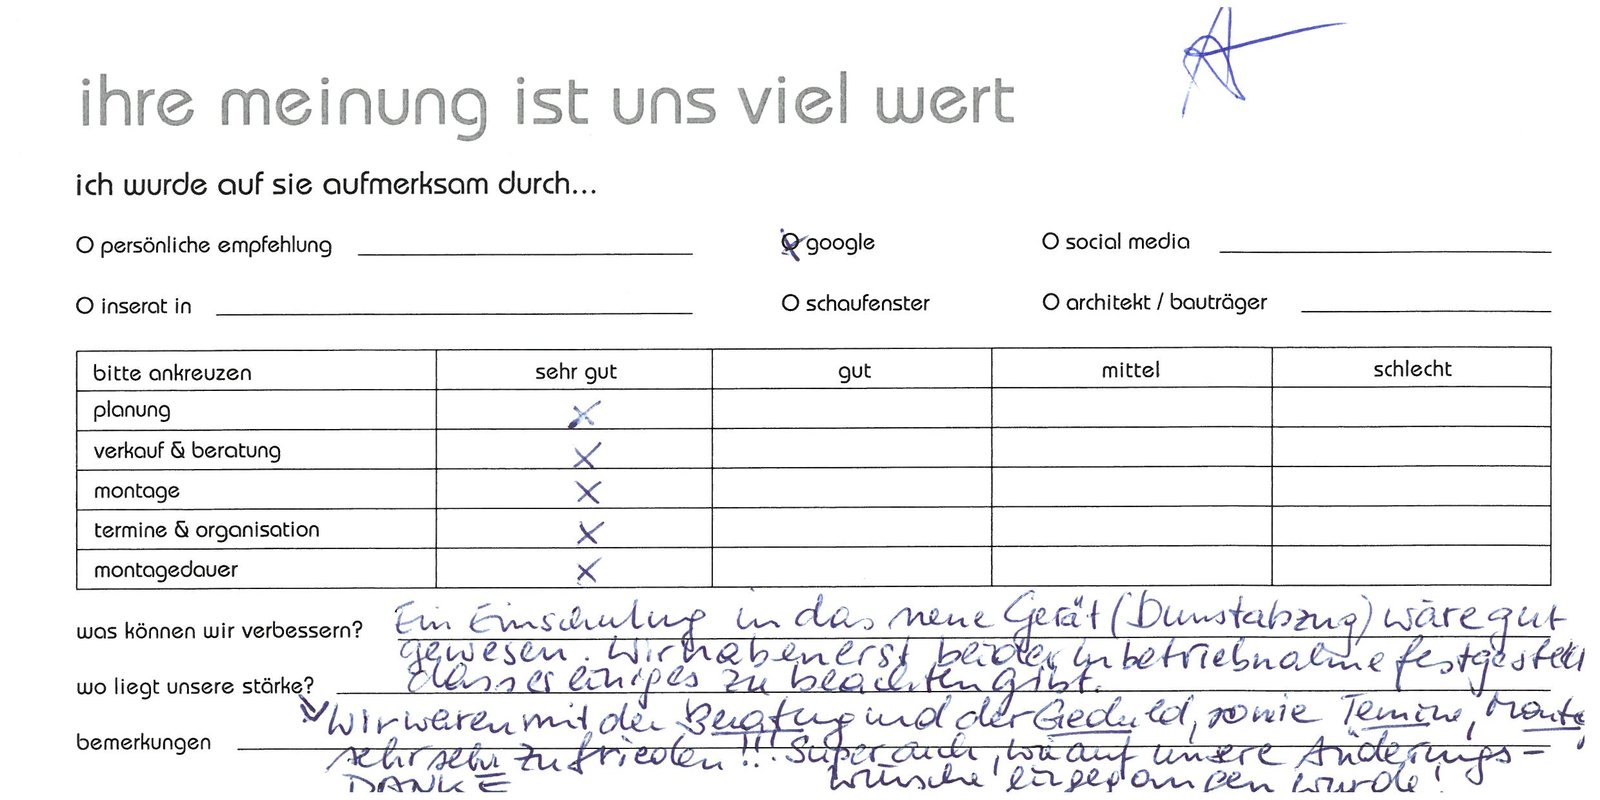 ihre meinung ist uns viel wert
ich wurde auf sie aufmerksam durch...
O persönliche empfehlung O google O social media
O inserat in O schaufenster O architekt / bauträger
bitte ankreuzen sehr gut gut mittel schlecht
planung X
verkauf & beratung X
montage X
termine & organisation X
montagedauer X
was können wir verbessern? Ein Einschulung in das neue Gerät (Dunstabzug) wäre gut
gewesen. Wir haben erst bei der Inbetriebnahme festgestellt
wo liegt unsere stärke? dass es einiges zu beachten gibt.
Wir waren mit der Beratung und der Geduld, sowie Termine, Monta
bemerkungen sehr sehr zufrieden!!! Super auch, wie auf unsere Änderungs-
DANKE wünsche eingegangen wurde!